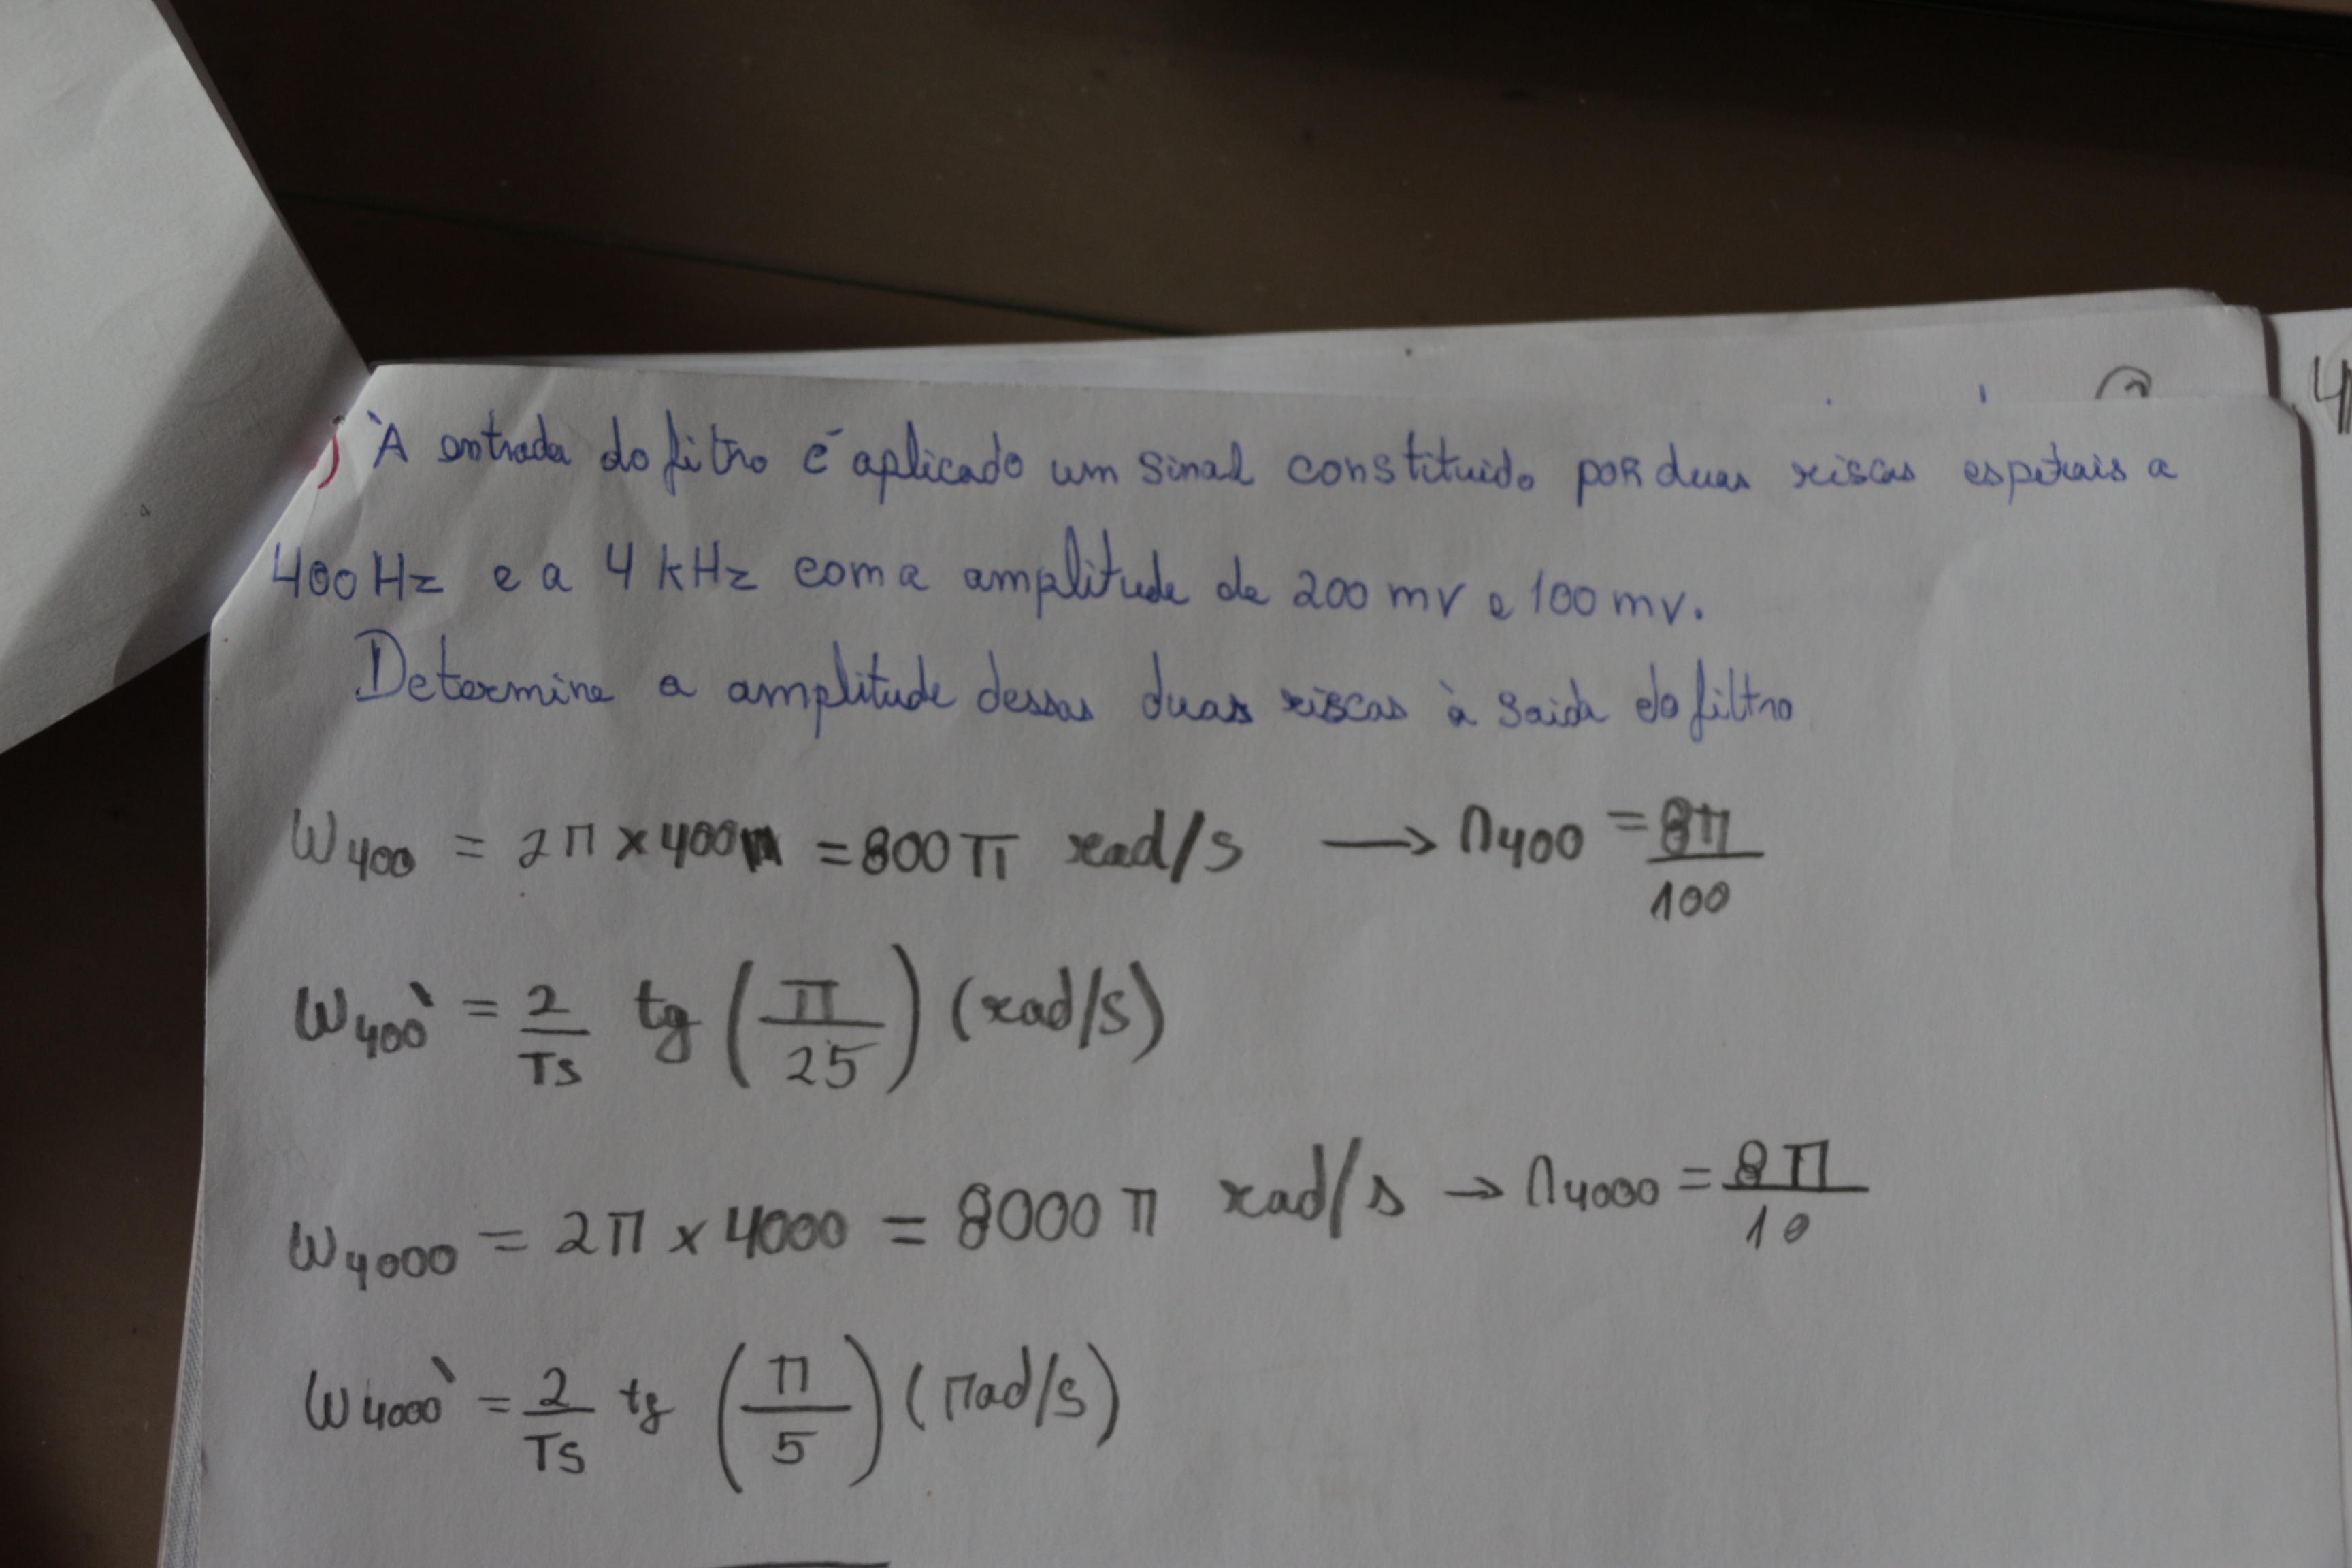 ) À entrada do filtro é aplicado um sinal constituido por duas riscas espetrais a
400 Hz e a 4 kHz com a amplitude de 200 mv e 100 mv.
Determine a amplitude dessas duas riscas à saida do filtro
W400 = 2π x 400 = 800 π rad/s → Ω400 = 8π/100
W400` = 2/Ts tg (π/25) (rad/s)
W4000 = 2π x 4000 = 8000 π rad/s → Ω4000 = 8π/10
W4000` = 2/Ts tg (π/5) (rad/s)